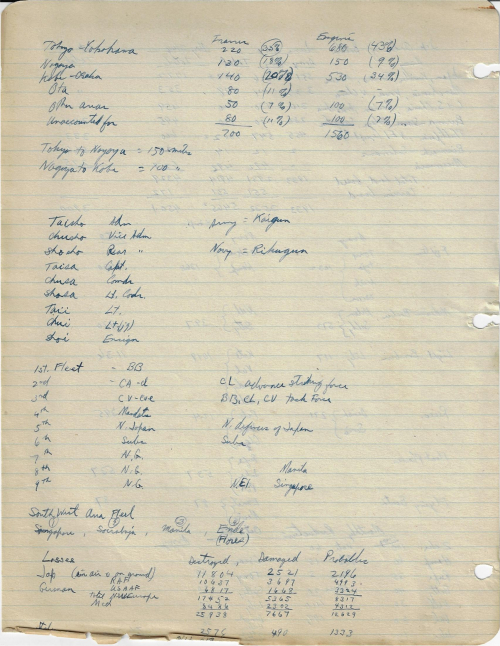 Frames Engine
Tokyo-Yokohama 220 (33%) 680 (43%)
Nagoya 130 (18%) 150 (9%)
Kobe-Osaka 140 (20%) 530 (34%)
Ota 80 (11%) -
Other areas 50 (7%) 100 (7%)
Unaccounted for 80 (11%) 100 (7%)
700 1560
Tokyo to Nagoya = 150 miles
Nagoya to Kobe = 100 "
Taisho Adm Army = Kaigun
Chusho Vice Adm
Shosho Rear " Navy = Rikugun
Taisa Capt.
Chusa Comdr
Shosa Lt. Comdr.
Taii LT.
Chui Lt(jg)
Shoi Ensign
1st. Fleet - BB
2nd - CA-d CL advance striking force
3rd CV-CVE BB, CL, CV task Force
4th Mandate
5th N. Japan N. defences of Japan
6th Subs Subs
7th N.G.
8th N.G. Manila
9th N.G. N.EI. Singapore
South West Area Fleet
Singapore, Soerabaja, Manila, Ende
(Flores)
Losses Destroyed, Damaged, Probables
Jap (in air & on ground) 11804 2521 2196
German RAF 10637 3697
USAAF 6817 1668 3324
Total 17454 5365 8317
Med 8484 2302 4312
25938 7667 12629
2576 490 1323